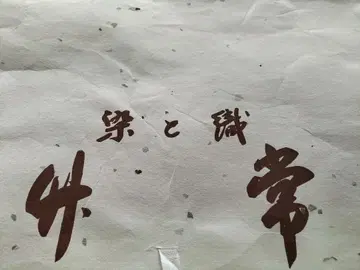 染と織
升常